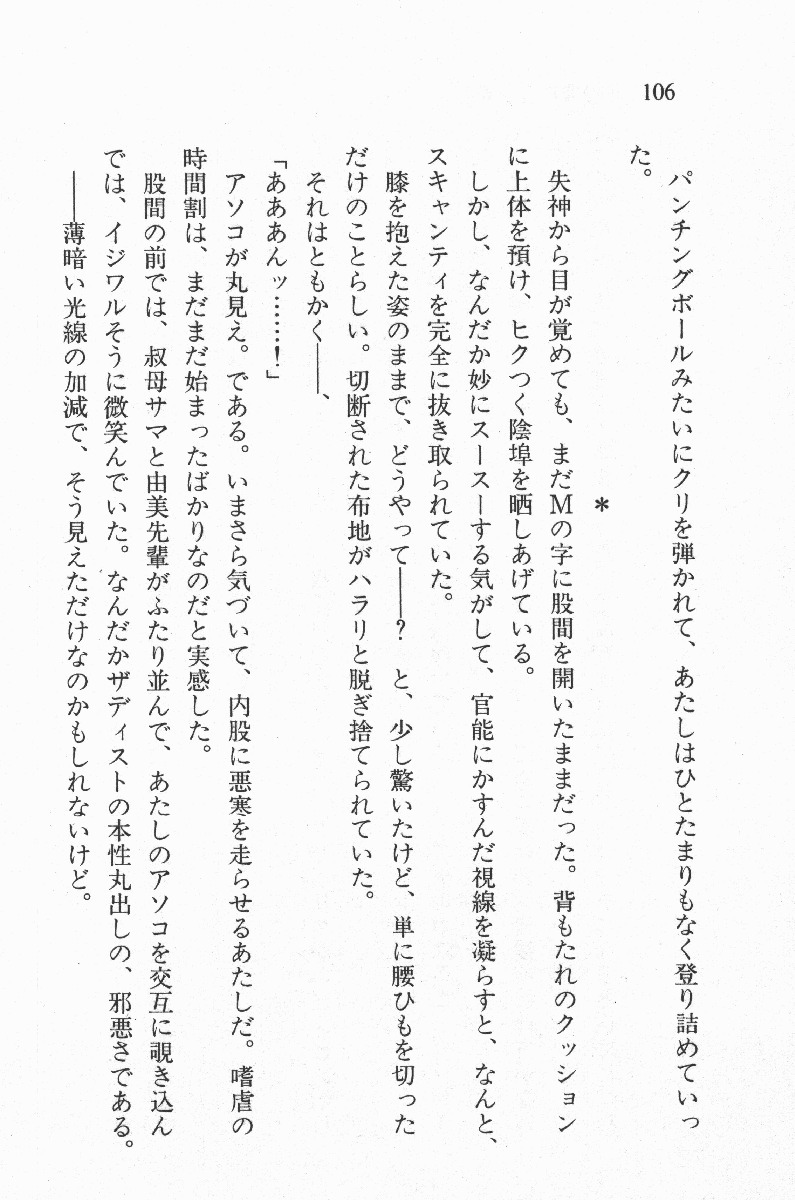 106
パンチングボールみたいにクリを弾かれて、あたしはひとたまりもなく登り詰めていっ
た。
*
失神から目が覚めても、まだMの字に股間を開いたままだった。背もたれのクッション
に上体を預け、ヒクつく陰埠を晒しあげている。
しかし、なんだか妙にスースーする気がして、官能にかすんだ視線を凝らすと、なんと、
スキャンティを完全に抜き取られていた。
膝を抱えた姿のままで、どうやって――? と、少し驚いたけど、単に腰ひもを切った
だけのことらしい。切断された布地がハラリと脱ぎ捨てられていた。
それはともかく――、
「あああんッ……!」
アソコが丸見え。である。いまさら気づいて、内股に悪寒を走らせるあたしだ。嗜虐の
時間割は、まだまだ始まったばかりなのだと実感した。
股間の前では、叔母サマと由美先輩がふたり並んで、あたしのアソコを交互に覗き込ん
では、イジワルそうに微笑んでいた。なんだかザディストの本性丸出しの、邪悪さである。
――薄暗い光線の加減で、そう見えただけなのかもしれないけど。